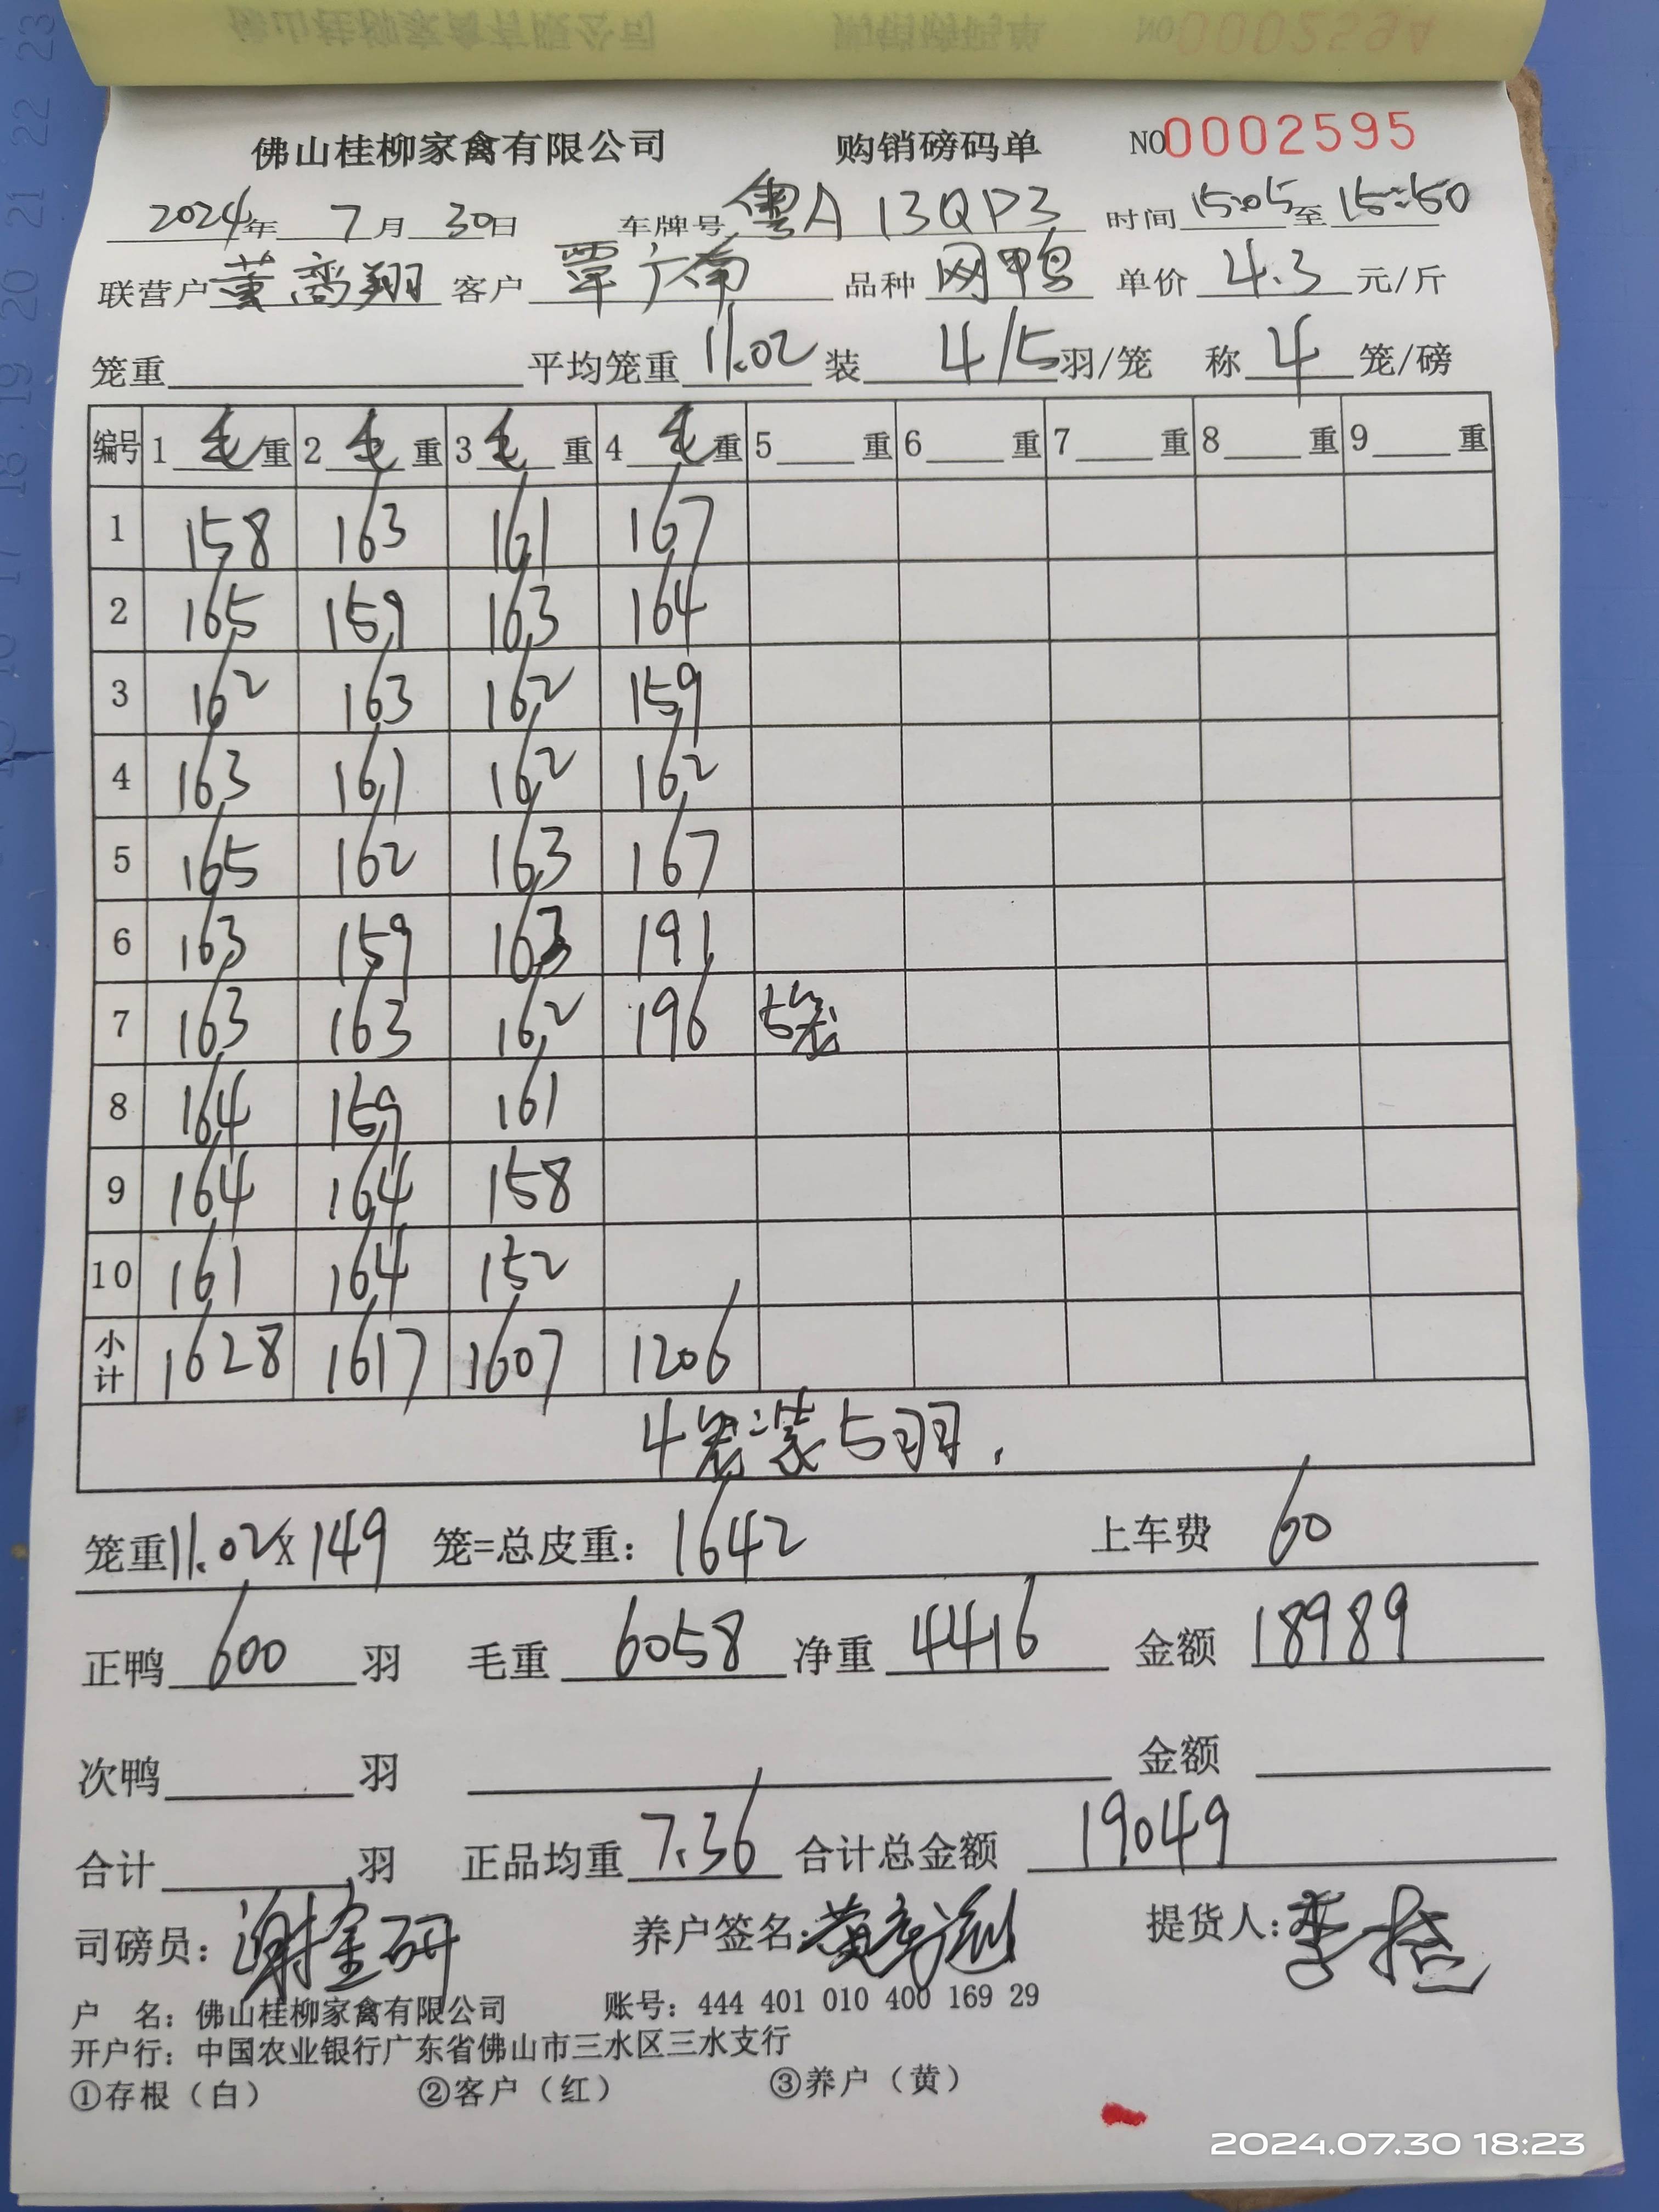 佛山桂柳家禽有限公司 购销磅码单 NO0002595
2024年 7月 30日 车牌号 粤A 13QP3 时间 15:05至 15:50
联营户 客户 覃广南 品种 网鸭 单价 4.3 元/斤
笼重 平均笼重 11.02 装 4/5羽/笼 称 4 笼/磅
编号 1 毛重 2 毛重 3 毛重 4 毛重 5 重 6 重 7 重 8 重 9 重
1 158 163 161 167
2 165 159 163 164
3 162 163 162 159
4 163 161 162 162
5 165 162 163 167
6 163 159 163 191
7 163 163 162 196 5笼
8 164 159 161
9 164 164 158
10 161 164 152
小计 1628 1617 1607 1206
4笼装5羽.
笼重11.02X149 笼=总皮重: 1642 上车费 60
正鸭 600 羽 毛重 6058 净重 4416 金额 18989
次鸭 羽 金额
合计 羽 正品均重 7.36 合计总金额 19049
司磅员: 养户签名: 提货人:
户 名: 佛山桂柳家禽有限公司 账号: 444 401 010 400 169 29
开户行: 中国农业银行广东省佛山市三水区三水支行
①存根（白） ②客户（红） ③养户（黄）
2024.07.30 18:23